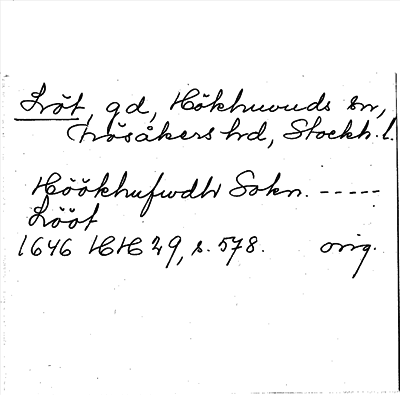 Fröt, gd, Hökhuvuds sn,
Frösåkers hd, Stockh. l.
Höökhufwdh Sokn. -----
Frööt
1646 HH 29, s. 578. orig.